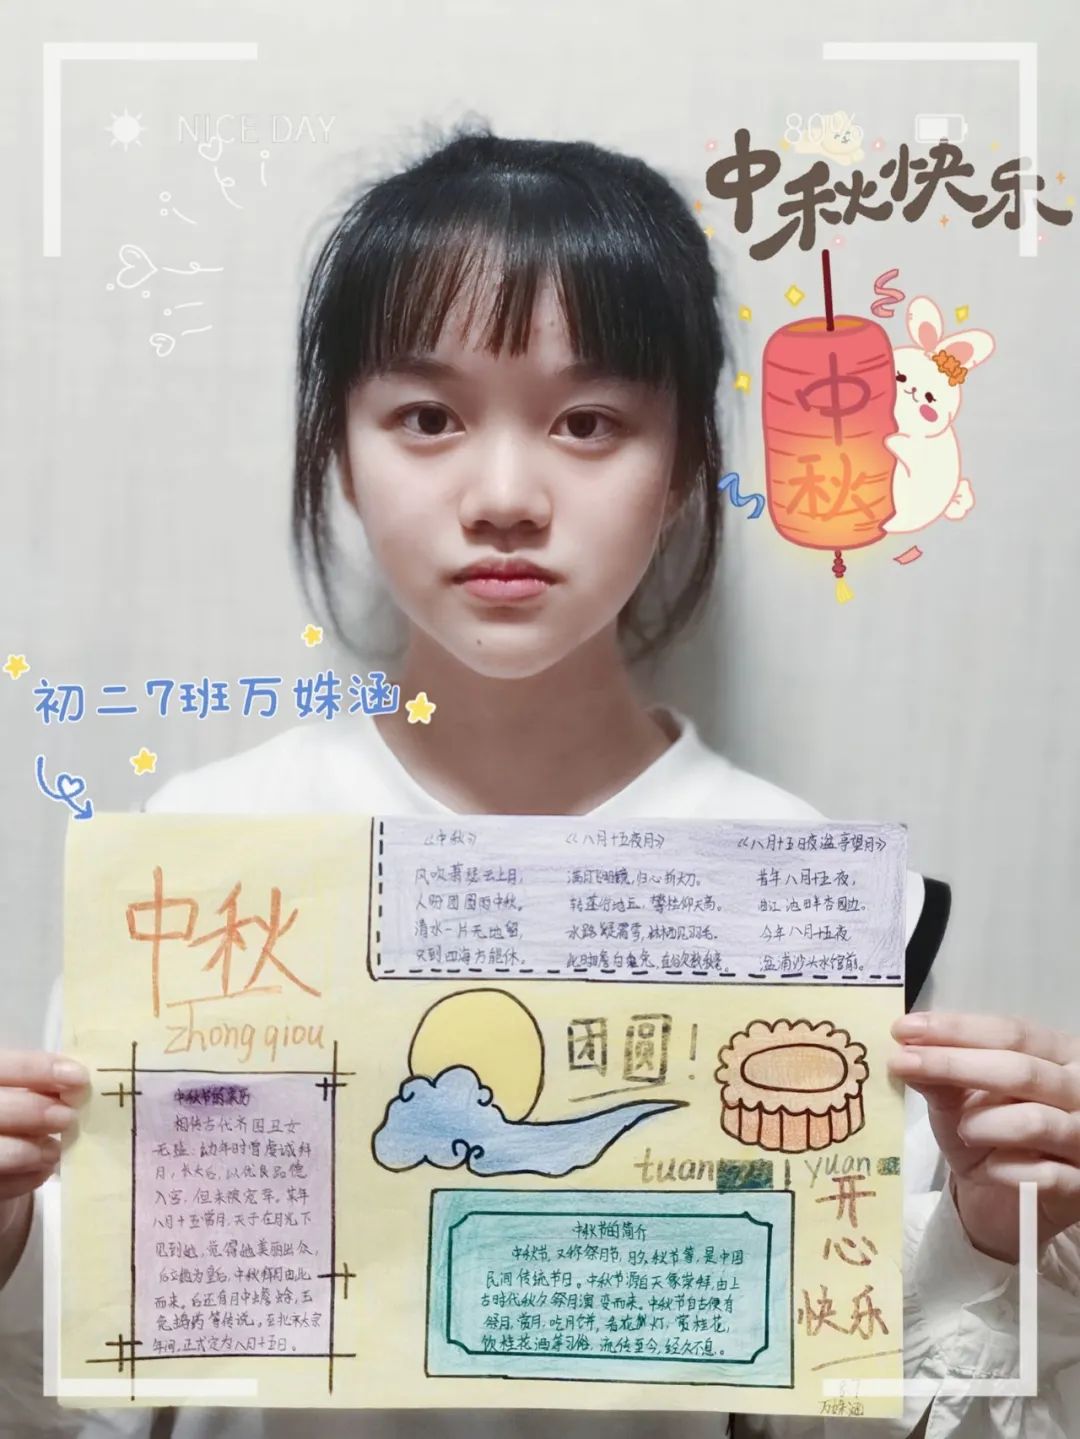 NICE DAY
80%
中秋快乐
中秋
初二7班万姝涵
中秋
zhong qiou
《中秋》
风吹萧瑟云上月，
人盼团圆雨中秋。
清水一片无地留，
只到四海方能休。
《八月十五夜月》
满月飞明镜，归心折大刀。
转蓬行地远，攀桂仰天高。
水路疑霜雪，林栖见羽毛。
此时瞻白兔，直欲数秋毫。
《八月十五日夜湓亭望月》
昔年八月十五夜，
曲江池畔杏园边。
今年八月十五夜
湓浦沙头水馆前。
团圆！
tuan yuan
开心
快乐
中秋节的来历
相传古代齐国丑女
无盐，幼年时曾虔诚拜
月，长大后，以优良品德
入宫，但未被宠幸。某年
八月十五赏月，天子在月光下
见到她，觉得她美丽出众，
后立她为皇后，中秋拜月由此
而来。后还有月中蟾蜍，玉
兔捣药等传说。至北宋太宗
年间，正式定为八月十五日。
中秋节的简介
中秋节，又称祭月节，月夕，秋节等，是中国
民间传统节日。中秋节源自天象崇拜，由上
古时代秋夕祭月演变而来。中秋节自古便有
祭月，赏月，吃月饼，看花灯，赏桂花，
饮桂花酒等习俗，流传至今，经久不息。
8.7
万姝涵